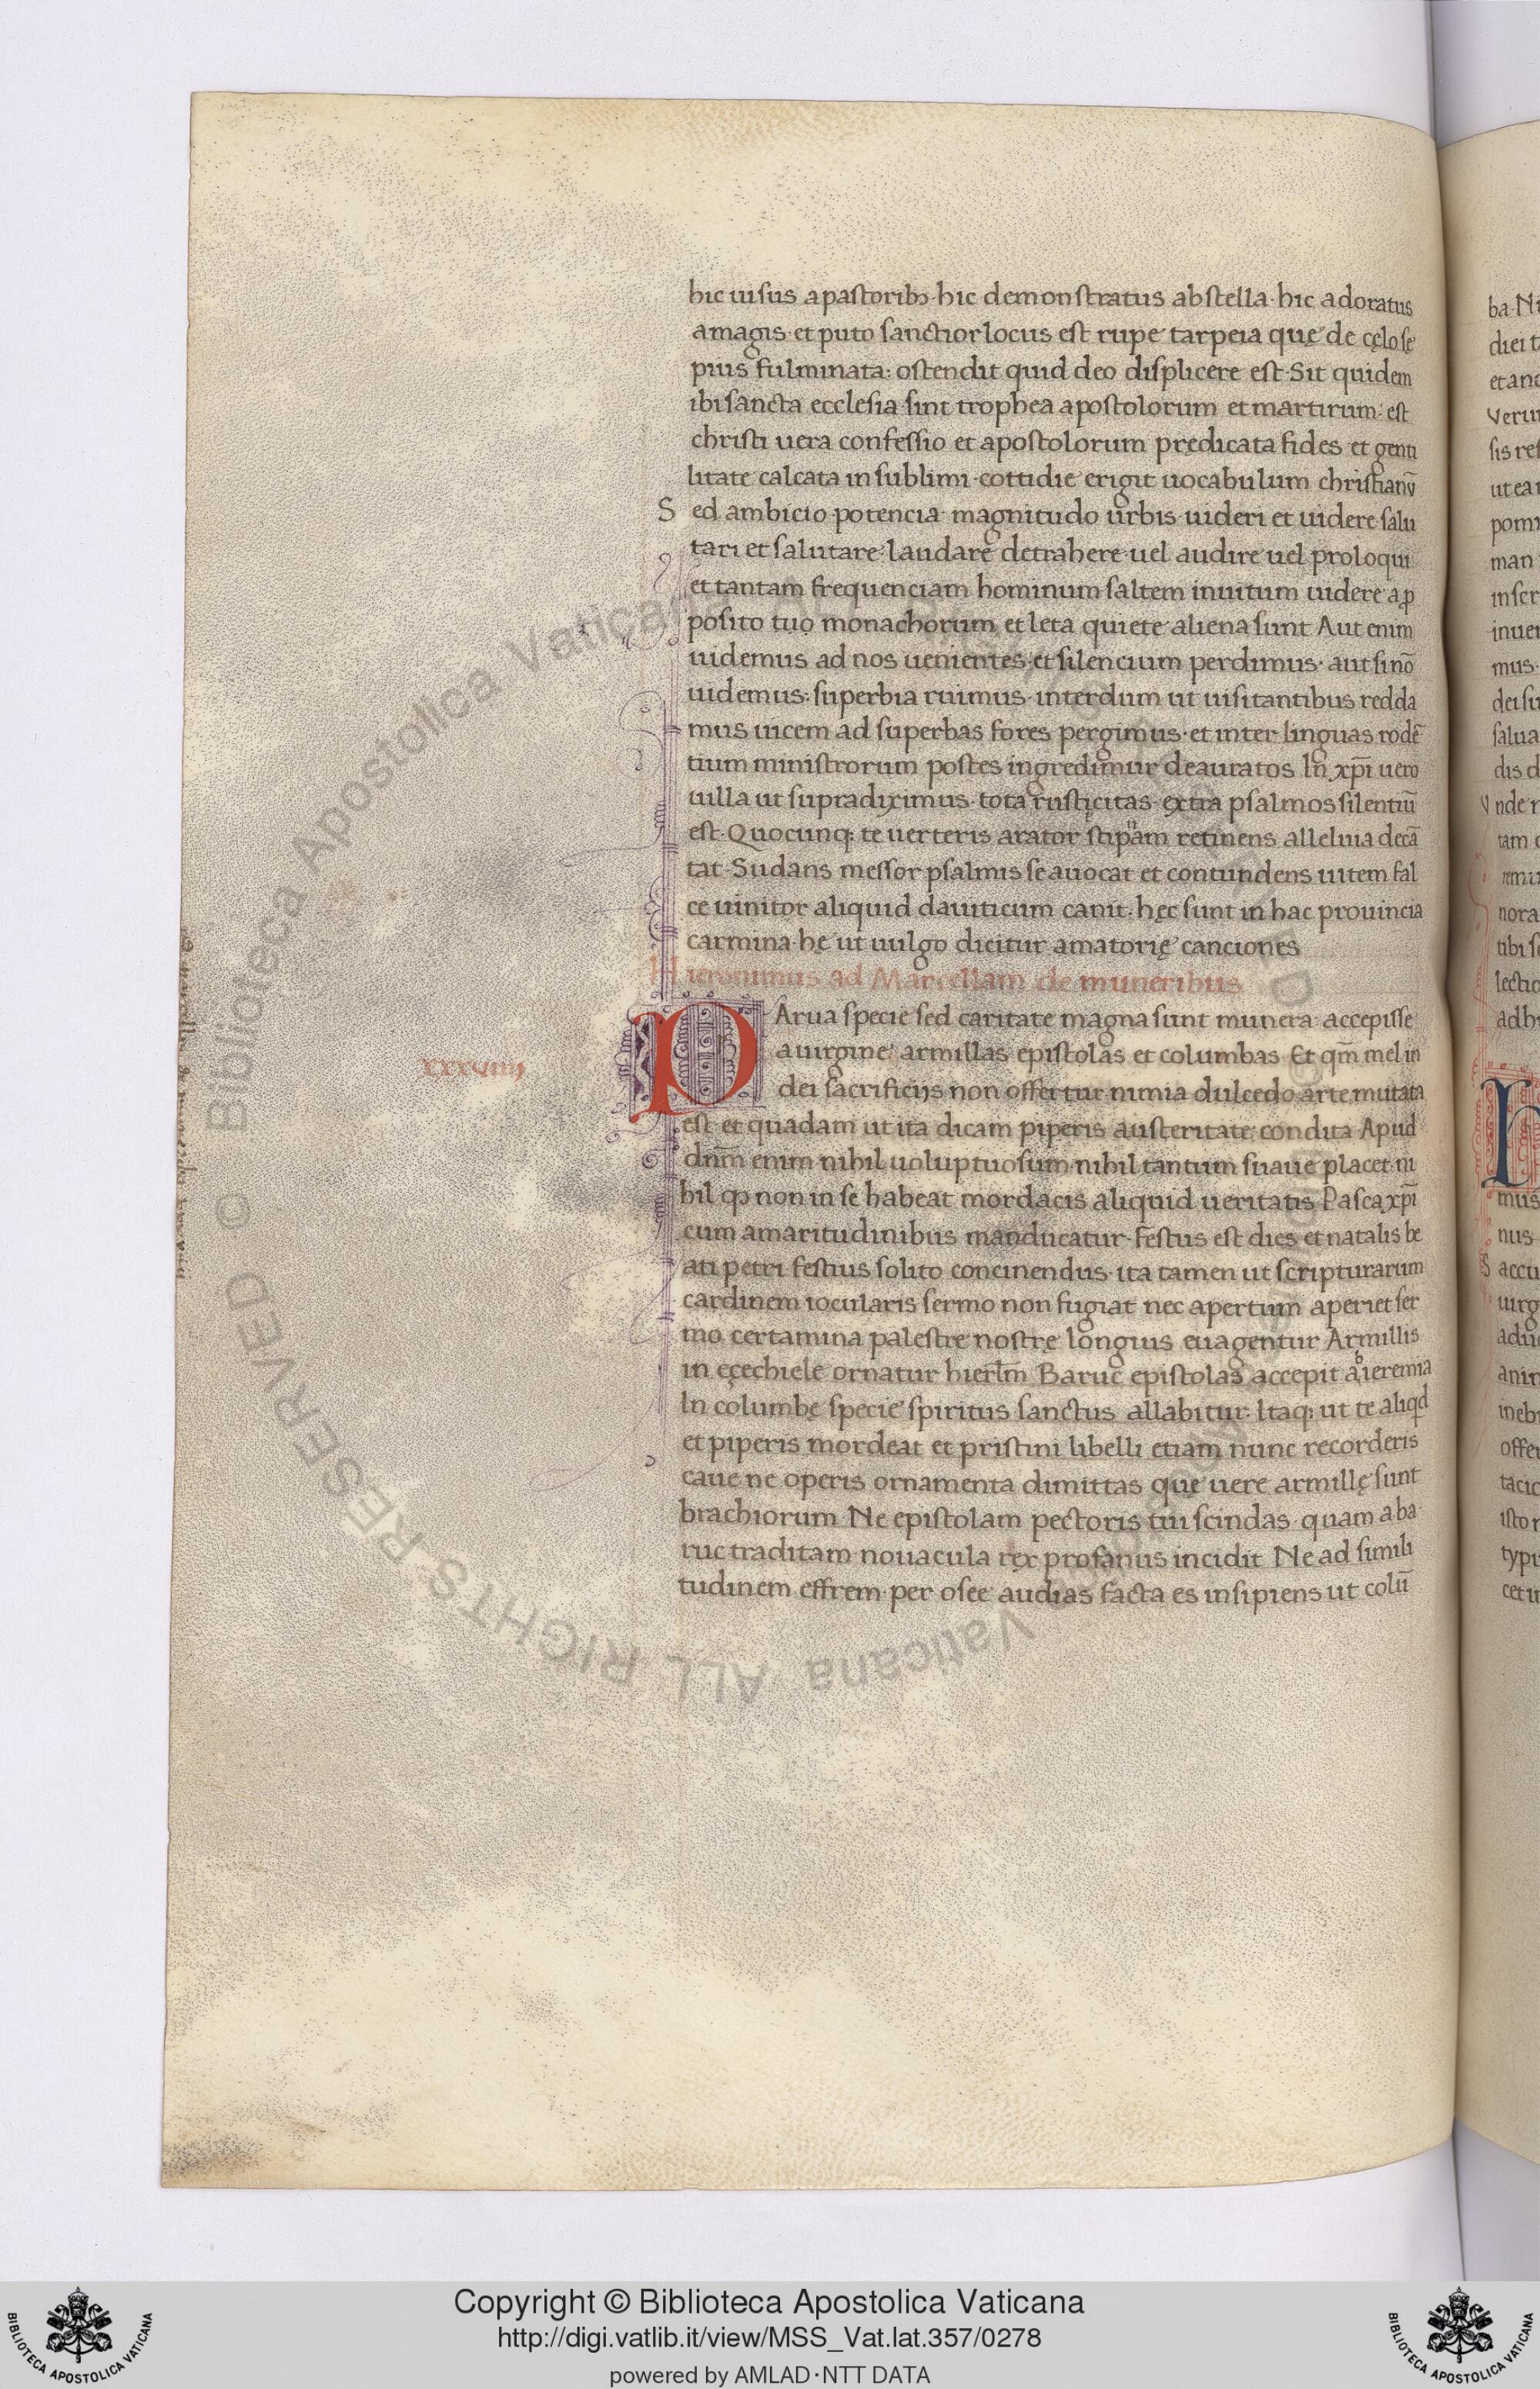 hic uisus a pastoribꝫ· hic demonstratus ab stella· hic adoratus
a magis· et puto sanctior locus est rupe tarpeia quę de cęlo sę
pius fulminata: ostendit quid deo displicere est· Sit quidem
ibi sancta ecclesia· sint trophea apostolorum et martirum: est
christi uera confessio et apostolorum prędicata fides et genti
litate calcata in sublimi· cottidie erigit uocabulum christianū
Sed ambicio· potencia· magnitudo urbis· uideri et uidere· salu
tari et salutare· laudare· detrahere· uel audire uel proloqui
et tantam frequenciam hominum saltem inuitum uidere a ꝓ
posito tuo monachorum et leta quiete aliena sunt Aut enim
uidemus ad nos uenientes· et silencium perdimus· aut si nō
uidemus: superbia ruimus· interdum ut uisitantibus redda
mus uicem ad superbas fores pergimus· et inter linguas rodē
tium ministrorum postes ingredimur deauratos In xp̄i uero
uilla ut supra diximus· tota rusticitas· extra psalmos silentiū
est· Quocunq; te uerteris arator stiuam retinens alleluia decā
tat· Sudans messor psalmis se auocat et contundens uitem fal
ce uinitor aliquid dauiticum canit· hęc sunt in hac prouincia
carmina· hę ut uulgo dicitur amatorię canciones
Hieronimus ad Marcellam de muneribus
PArua specie sed caritate magna sunt munera· accepisse
a uirgine· armillas epistolas et columbas· Et qm̄ mel in
xxxviiii
dei sacrificijs non offertur nimia dulcedo arte mutata
est et quadam ut ita dicam piperis austeritate condita· Apud
dn̄m enim nihil uoluptuosum· nihil tantum suaue placet· ni
hil qꝫ non in se habeat mordacis aliquid ueritatis· Pasca xp̄i
cum amaritudinibus manducatur· Festus est dies et natalis be
ati petri· festius solito concinendus· ita tamen ut scripturarum
cardinem iocularis sermo non fugiat nec apertum aperiet ser
mo certamina palestre nostrę longius euagentur Armillis
in eçechiele ornatur hierl̄m Baruc epistolas accepit a ieremia
In columbę specie spiritus sanctus allabitur· Itaq; ut te aliqd
et piperis mordeat et pristini libelli etiam nunc recorderis
caue ne operis ornamenta dimittas quę uere armillę sunt
brachiorum· Ne epistolam pectoris tui scindas· quam a ba
ruc traditam nouacula rex profanus incidit Ne ad simili
tudinem effrem· per osee audias facta es insipiens ut colū
Copyright © Biblioteca Apostolica Vaticana
http://digi.vatlib.it/view/MSS_Vat.lat.357/0278
powered by AMLAD·NTT DATA
BIBLIOTECA APOSTOLICA VATICANA
BIBLIOTECA APOSTOLICA VATICANA
© Biblioteca Apostolica Vaticana ALL RIGHTS RESERVED